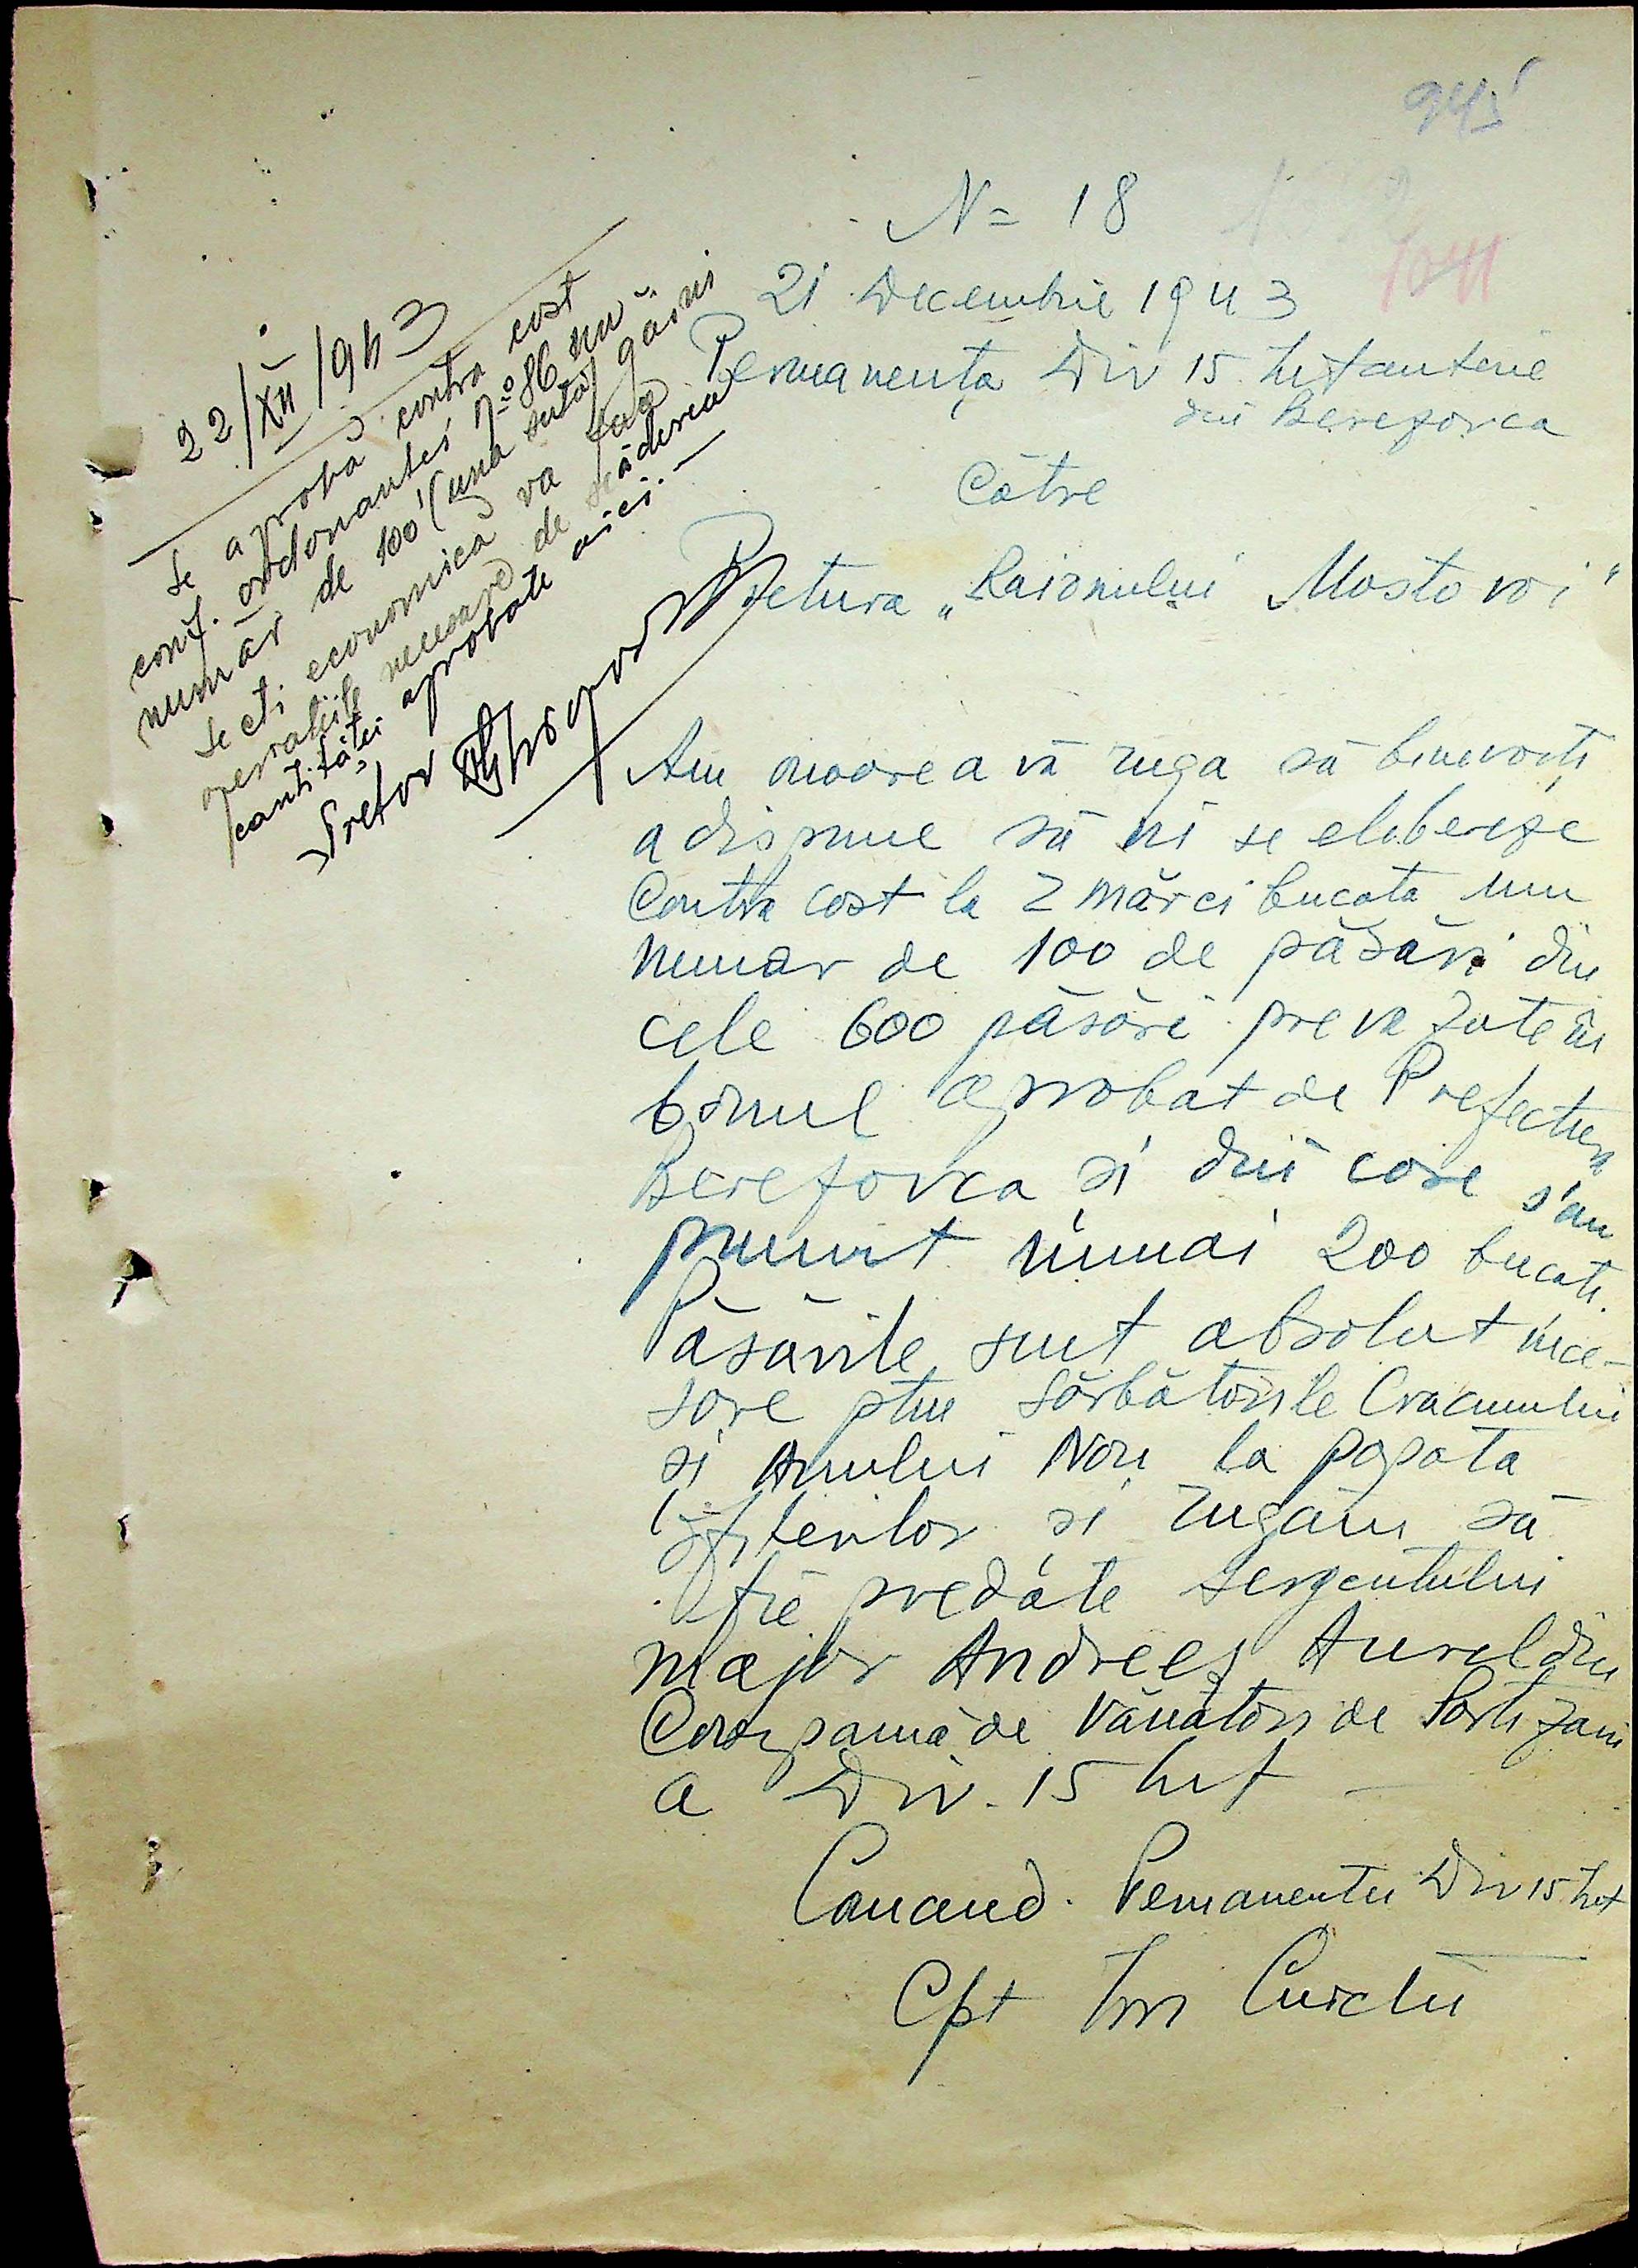 945
N= 18
1041
21 Decembrie 1943
Permanenta Div 15 Infanterie
din Berezovca
Către
Pretura „Raionului Mostovoi"
22/XII/943
Se aprobă contra cost
conf. ordonantei No 86 un
număr de 100 (una sută) găini
Secti economică va face
operatiile necesare de scăderea
cantităţei aprobate aici.—
Pretor
Am onoarea vă ruga să binevoiţi
a dispune să ni se elibereze
Contra cost la 2 mărci bucata un
numar de 100 de păsări din
cele 600 păsări prevazute în
bonul aprobat de Prefectura
Berezovca si din care s'au
primit numai 200 bucati.
Păsările sunt absolut nece-
sare ptru sărbătorile Craciunului
si Anului Nou la popota
ofiterilor si rugăm să
fie predate sergentului
major Andreeş Aurel din
Compania de Vânători de Partizani
a Div. 15 Inf —
Comand. Permanentei Div 15 Inf
Cpt Ion